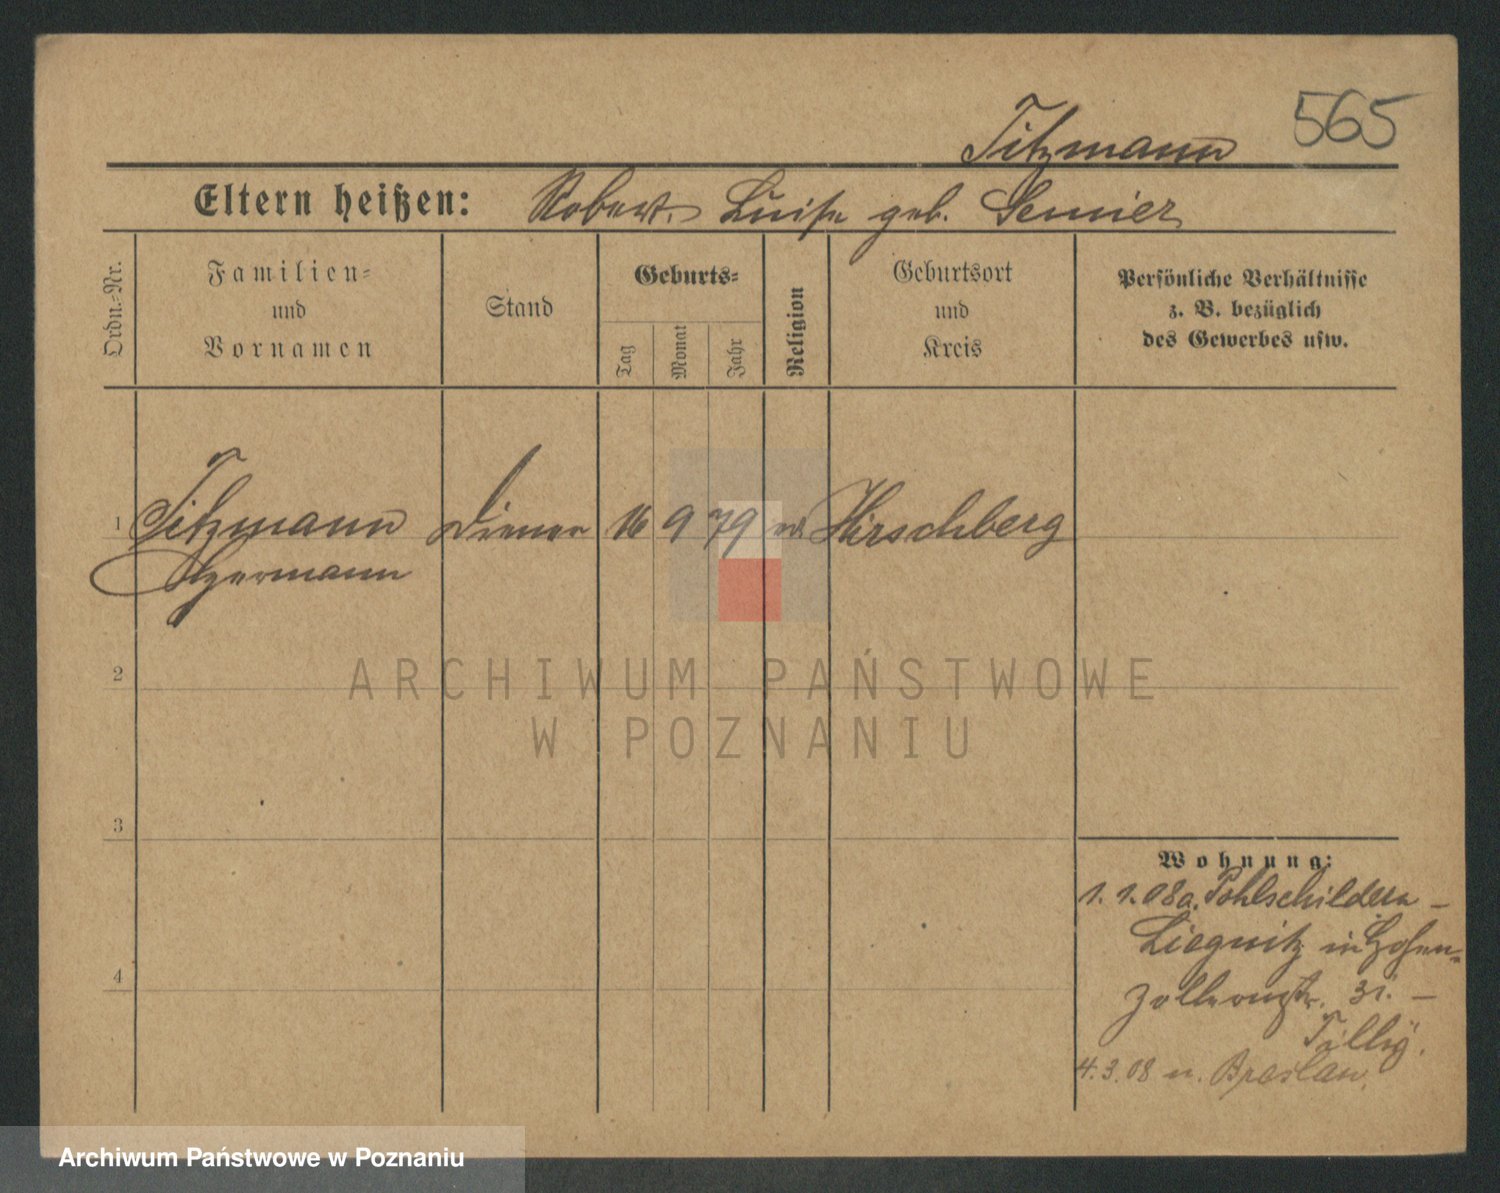 565
Titzmann
Eltern heißen: Robert. Luise geb. Semier
Ordn.-Nr.
Familien-
und
Vornamen
Stand
Geburts-
Tag
Monat
Jahr
Religion
Geburtsort
und
Kreis
Persönliche Verhältnisse
z. B. bezüglich
des Gewerbes usw.
1 Titzmann Diener 16 9 79 Hirschberg
Hermann
2
3
4
ARCHIWUM PAŃSTWOWE
W POZNANIU
Wohnung:
1. 1. 08 a. Pohlschildern –
Liegnitz in Hohen-
zollernstr. 31. –
Tillig.
4. 3. 08 n. Breslau.
Archiwum Państwowe w Poznaniu